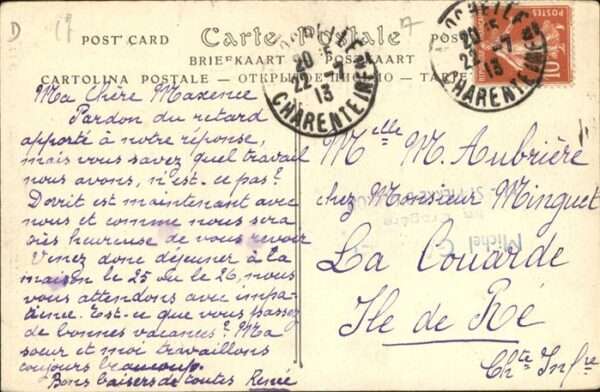 D
POST CARD
Carte Postale
BRIEFKAART
POSTKAART
CARTOLINA POSTALE
20 15
22 - 7
13
CHARENTE INF
ROCHELLE
20 15
22 - 7
13
CHARENTE INF
POSTES
10
Ma Chère Maxence
Pardon du retard
apporté à notre réponse,
mais vous savez quel travail
nous avons, n'est-ce pas?
Dorrit est maintenant avec
nous et comme nous sera
très heureuse de vous revoir
Venez donc déjeuner à la
maison le 25 ou le 26, nous
vous attendons avec impa-
tience. Est-ce que vous passez
de bonnes vacances? Ma
sœur et moi travaillons
toujours beaucoup.
Bons baisers de toutes Renée
Melle M. Aubrière
chez Monsieur Minguet
La Couarde
Ile de Ré
Chte Infre
Michel